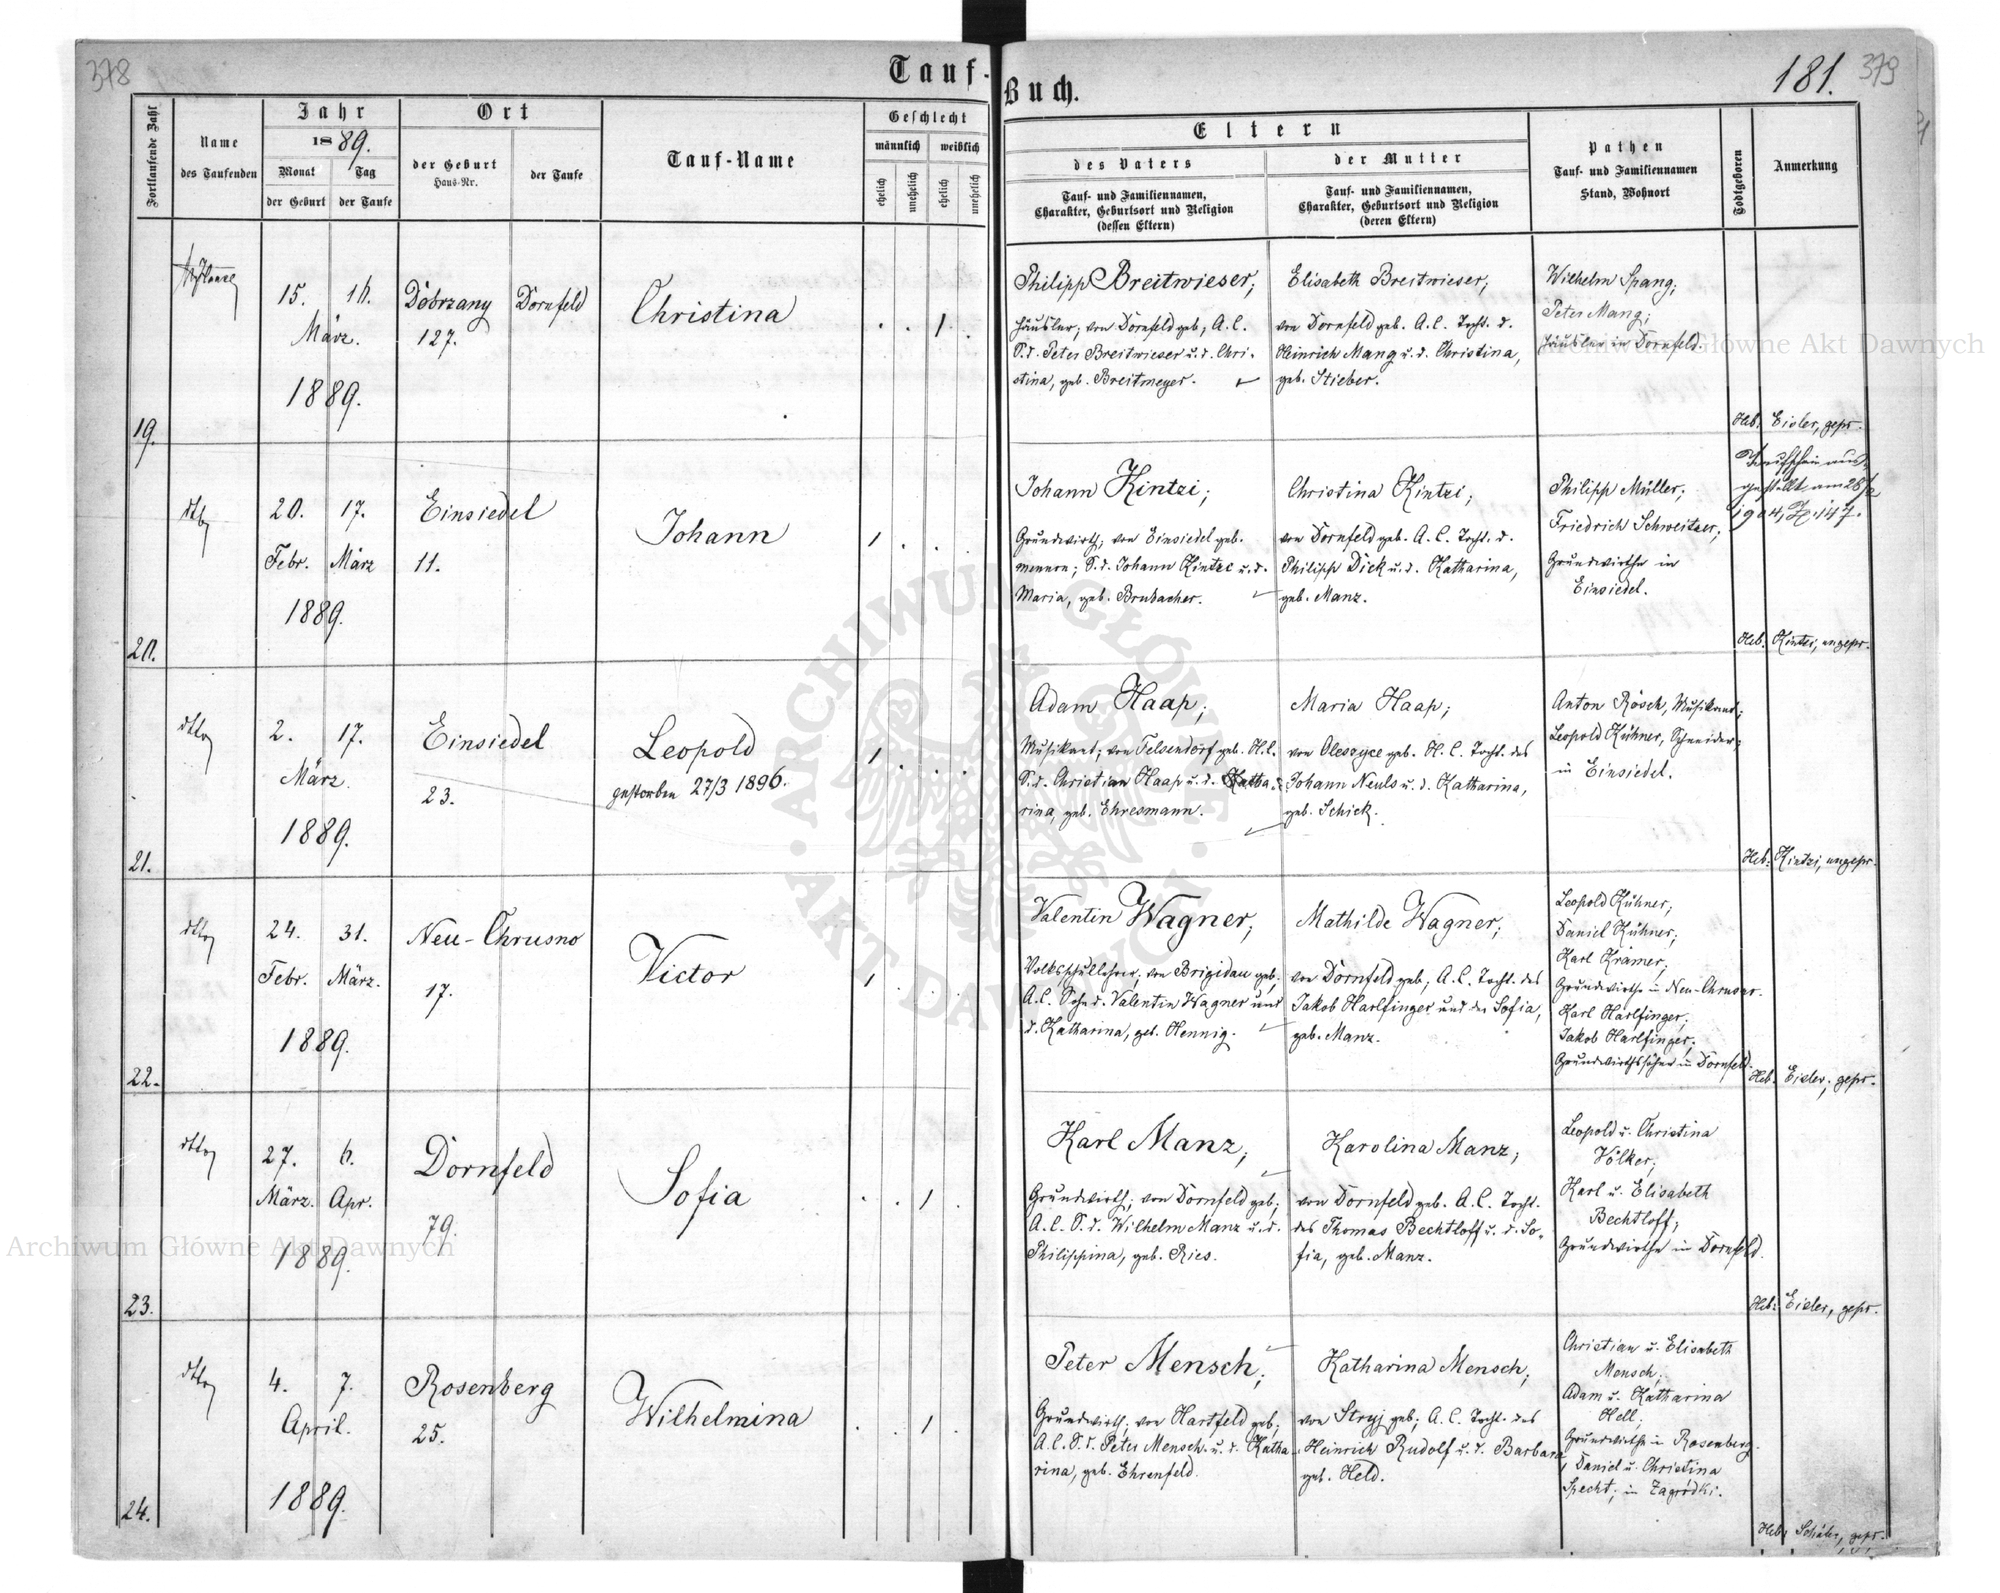 378
Tauf-
Buch.
181.
379
Fortlaufende Zahl
Name
des Taufenden
Jahr
1889.
Monat
Tag
der Geburt
der Taufe
Ort
der Geburt
Haus-Nr.
der Taufe
Tauf-Name
Geschlecht
männlich
weiblich
ehelich
unehelich
ehelich
unehelich
Eltern
des Vaters
Tauf- und Familiennamen,
Charakter, Geburtsort und Religion
(dessen Eltern)
der Mutter
Tauf- und Familiennamen,
Charakter, Geburtsort und Religion
(deren Eltern)
Pathen
Tauf- und Familiennamen
Stand, Wohnort
Todtgeboren
Anmerkung
19.
15. 16.
März.
1889.
Dobrzany
127.
Dornfeld
Christina
1
Philipp Breitwieser;
Häusler; von Dornfeld geb; A. C.
S. d. Peter Breitwieser u. d. Chri-
stina, geb. Breitmeyer.
Elisabeth Breitwieser;
von Dornfeld geb. A. C. Tocht. d.
Heinrich Mang u. d. Christina,
geb. Stieber.
Wilhelm Spang;
Peter Mang;
Häusler in Dornfeld.
Heb. Eisler, gepr.
20.
dtto
20. 17.
Febr. März
1889.
Einsiedel
11.
Johann
1
Johann Kintzi;
Grundwirth; von Einsiedel geb.
mennon; S. d. Johann Kintzi u. d.
Maria, geb. Brubacher.
Christina Kintzi;
von Dornfeld geb. A. C. Tocht. d.
Philipp Dick u. d. Katharina,
geb. Manz.
Philipp Müller;
Friedrich Schweitzer;
Grundwirthe in
Einsiedel.
Taufschein aus-
gestellt am 28/2
1904, Z. 147.
Heb. Kintzi, ungepr.
21.
dtto
2. 17.
März.
1889.
Einsiedel
23.
Leopold
gestorben 27/3 1896.
1
Adam Haap;
Musikant; von Felsendorf geb. H. C.
S. d. Christian Haap u. d. Katha-
rina, geb. Ehresmann.
Maria Haap;
von Oleszyce geb. H. C. Tocht. des
Johann Neuls u. d. Katharina,
geb. Schick.
Anton Rösch, Musikant;
Leopold Kühner, Schneider;
in Einsiedel.
Heb. Kintzi, ungepr.
22.
dtto
24. 31.
Febr. März.
1889.
Neu-Chrusno
17.
Victor
1
Valentin Wagner;
Volksschullehrer; von Brigidau geb;
A. C. Sohn d. Valentin Wagner und
d. Katharina, geb. Hennig.
Mathilde Wagner;
von Dornfeld geb; A. C. Tocht. des
Jakob Harlfinger und der Sofia,
geb. Manz.
Leopold Kühner;
Daniel Kühner;
Karl Krämer;
Grundwirthe in Neu-Chrusno.
Karl Harlfinger;
Jakob Harlfinger;
Grundwirthssöhne in Dornfeld.
Heb. Eisler, gepr.
23.
dtto
27. 6.
März. Apr.
1889.
Dornfeld
79.
Sofia
1
Karl Manz;
Grundwirth; von Dornfeld geb;
A. C. S. d. Wilhelm Manz u. d.
Philippina, geb. Ries.
Karolina Manz;
von Dornfeld geb. A. C. Tocht.
des Thomas Bechtloff u. d. So-
fia, geb. Manz.
Leopold u. Christina
Völker;
Karl u. Elisabeth
Bechtloff;
Grundwirthe in Dornfeld.
Heb. Eisler, gepr.
24.
dtto
4. 7.
April.
1889.
Rosenberg
25.
Wilhelmina
1
Peter Mensch;
Grundwirth; von Hartfeld geb;
A. C. S. d. Peter Mensch u. d. Katha-
rina, geb. Ehrenfeld.
Katharina Mensch;
von Stryj geb; A. C. Tocht. des
Heinrich Rudolf u. d. Barbara,
geb. Held.
Christian u. Elisabeth
Mensch;
Adam u. Katharina
Hell;
Grundwirthe in Rosenberg.
Daniel u. Christina
Specht; in Zagródki.
Heb. Schäler, gepr.
Archiwum Główne Akt Dawnych
Główne Akt Dawnych
ARCHIWUM GŁÓWNE AKT DAWNYCH